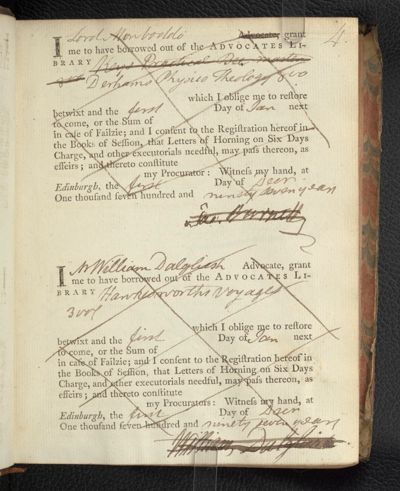 4.
I Lord Monboddo Advocate, grant
me to have borrowed out of the ADVOCATES LI-
BRARY
Derhams Physico Theology 8vo
which I oblige me to restore
betwixt and the first Day of Jan next
to come, or the Sum of
in case of Failzie; and I consent to the Registration hereof in
the Books of Session, that Letters of Horning on Six Days
Charge, and other executorials needful, may pass thereon, as
effeirs; and thereto constitute
my Procurator: Witness my hand, at
Edinburgh, the first Day of Decr
One thousand seven hundred and ninety seven years
Jas. Burnett
I Mr William Dalgliesh Advocate, grant
me to have borrowed out of the ADVOCATES LI-
BRARY Hawkesworths Voyages
3 voll
which I oblige me to restore
betwixt and the first Day of Jan next
to come, or the Sum of
in case of Failzie; and I consent to the Registration hereof in
the Books of Session, that Letters of Horning on Six Days
Charge, and other executorials needful, may pass thereon, as
effeirs; and thereto constitute
my Procurators: Witness my hand, at
Edinburgh, the first Day of Decr
One thousand seven hundred and ninety seven years
William Dalgliesh